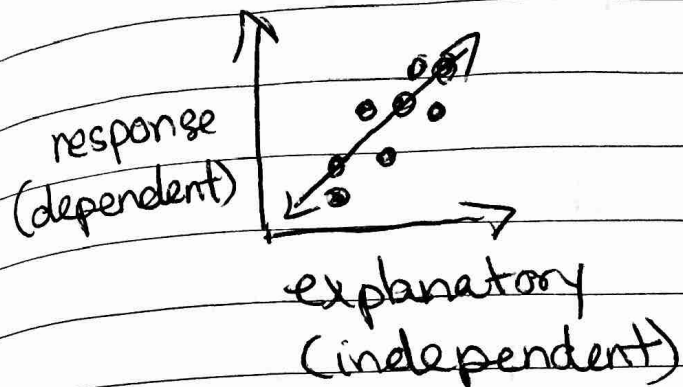 response
(dependent)
explanatory
(independent)